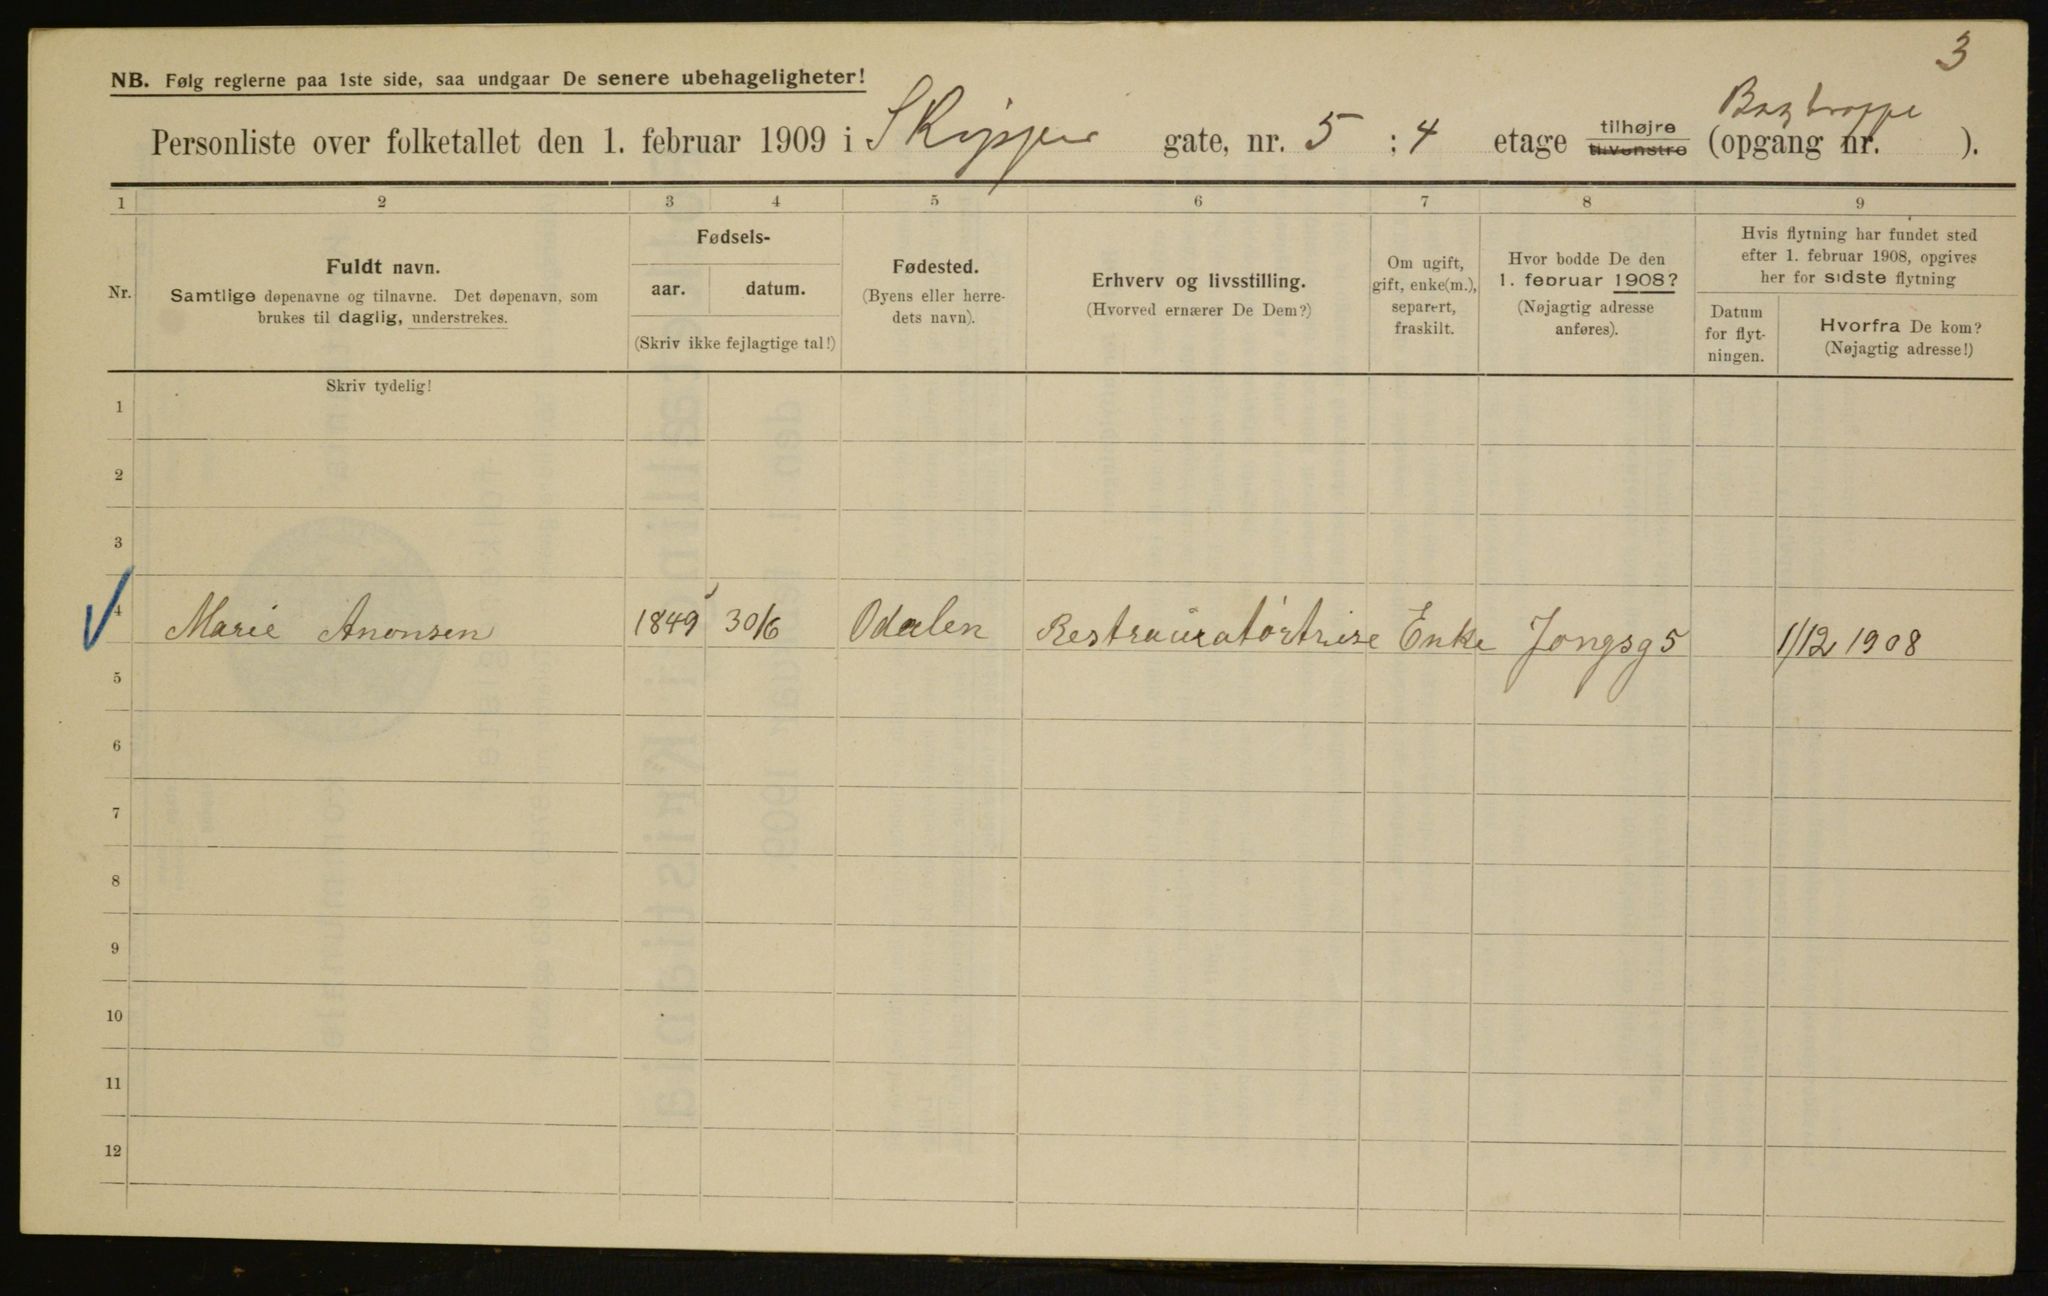 3
NB. Følg reglerne paa 1ste side, saa undgaar De senere ubehageligheter!
Bagtrappe
Personliste over folketallet den 1. februar 1909 i Skipper gate, nr. 5 ; 4 etage tilhøjre tilvenstre (opgang nr. ).
1 2 3 4 5 6 7 8 9
Nr.
Fuldt navn.
Samtlige døpenavne og tilnavne. Det døpenavn, som
brukes til daglig, understrekes.
Fødsels-
aar. datum.
(Skriv ikke fejlagtige tal!)
Fødested.
(Byens eller herre-
dets navn).
Erhverv og livsstilling.
(Hvorved ernærer De Dem?)
Om ugift,
gift, enke(m.),
separert,
fraskilt.
Hvor bodde De den
1. februar 1908?
(Nøjagtig adresse
anføres).
Hvis flytning har fundet sted
efter 1. februar 1908, opgives
her for sidste flytning
Datum
for flyt-
ningen.
Hvorfra De kom?
(Nøjagtig adresse!)
Skriv tydelig!
1
2
3
4 Marie Anonsen 1849 30/6 Odalen Restauratørtrise Enke Jongsg 5 1/12 1908
5
6
7
8
9
10
11
12